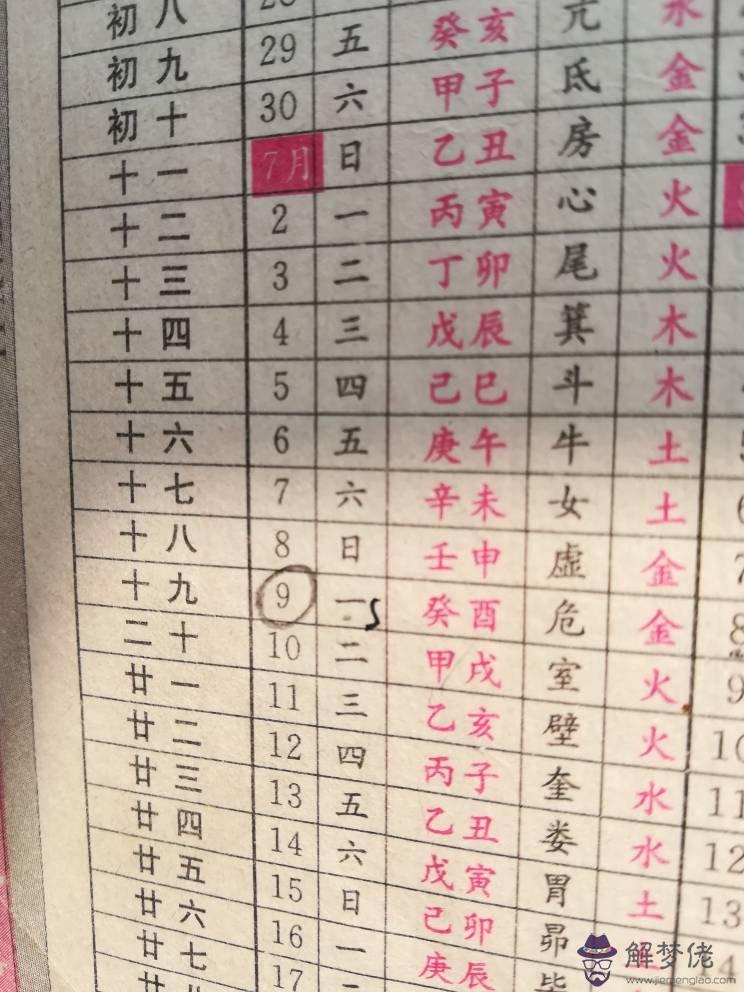 初八
初九 29 五 癸亥 亢 水
初十 30 六 甲子 氐 金
十一 7月 日 乙丑 房 金
十二 2 一 丙寅 心 火
十三 3 二 丁卯 尾 火
十四 4 三 戊辰 箕 木
十五 5 四 己巳 斗 木
十六 6 五 庚午 牛 土
十七 7 六 辛未 女 土
十八 8 日 壬申 虚 金
十九 9 一 癸酉 危 金
二十 10 二 甲戌 室 火 9
廿一 11 三 乙亥 壁 火 10
廿二 12 四 丙子 奎 水 11
廿三 13 五 乙丑 娄 水 12
廿四 14 六 戊寅 胃 土 13
廿五 15 日 己卯 昴
廿六 16 一 庚辰
廿七 17
解梦佬
www.jiemenglao.com